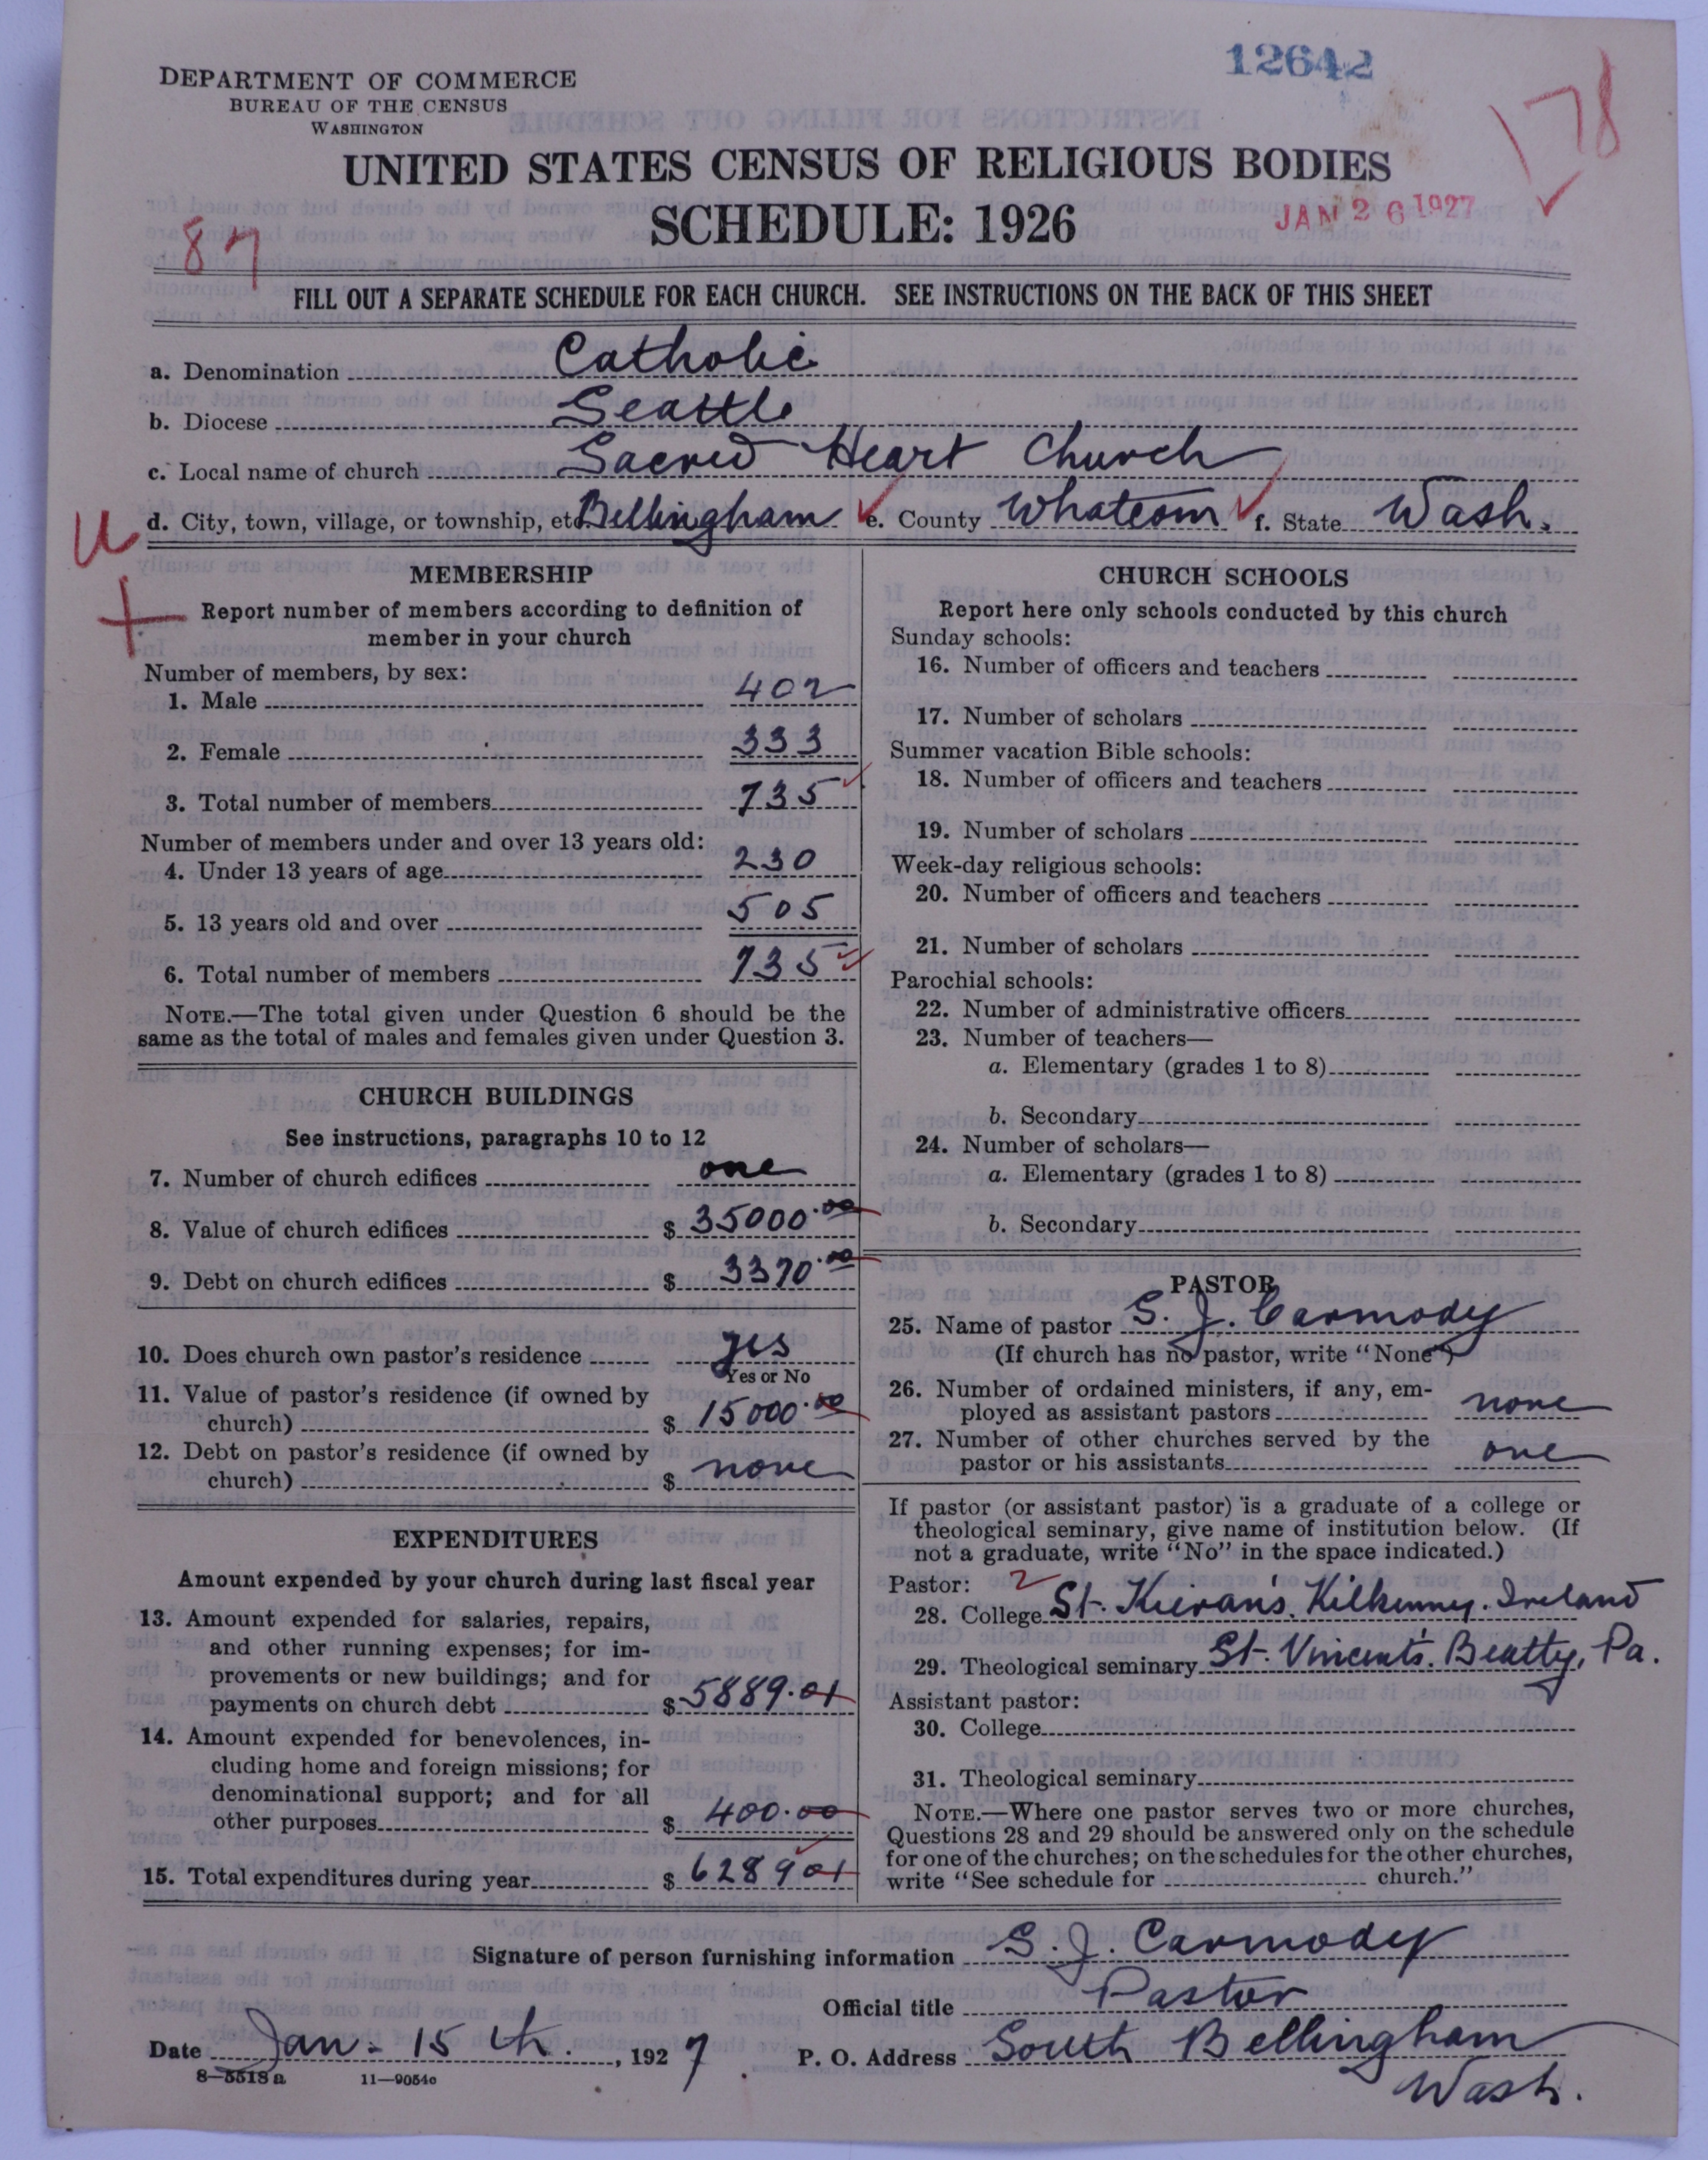 12642
178
DEPARTMENT OF COMMERCE
BUREAU OF THE CENSUS
WASHINGTON
UNITED STATES CENSUS OF RELIGIOUS BODIES
SCHEDULE: 1926
JAN 26 1927
87
FILL OUT A SEPARATE SCHEDULE FOR EACH CHURCH. SEE INSTRUCTIONS ON THE BACK OF THIS SHEET
a. Denomination Catholic
b. Diocese Seattle
c. Local name of church Sacred Heart Church
d. City, town, village, or township, etc. Bellingham e. County Whatcom f. State Wash.
U
MEMBERSHIP
Report number of members according to definition of
member in your church
Number of members, by sex:
1. Male 402
2. Female 333
3. Total number of members 735
Number of members under and over 13 years old:
4. Under 13 years of age 230
5. 13 years old and over 505
6. Total number of members 735
NOTE.—The total given under Question 6 should be the
same as the total of males and females given under Question 3.
CHURCH BUILDINGS
See instructions, paragraphs 10 to 12
7. Number of church edifices one
8. Value of church edifices $ 35000.00
9. Debt on church edifices $ 3370.00
10. Does church own pastor's residence yes
Yes or No
11. Value of pastor's residence (if owned by
church) $ 15000.00
12. Debt on pastor's residence (if owned by
church) $ none
EXPENDITURES
Amount expended by your church during last fiscal year
13. Amount expended for salaries, repairs,
and other running expenses; for im-
provements or new buildings; and for
payments on church debt $ 5889.01
14. Amount expended for benevolences, in-
cluding home and foreign missions; for
denominational support; and for all
other purposes $ 400.00
15. Total expenditures during year $ 6289 01
CHURCH SCHOOLS
Report here only schools conducted by this church
Sunday schools:
16. Number of officers and teachers
17. Number of scholars
Summer vacation Bible schools:
18. Number of officers and teachers
19. Number of scholars
Week-day religious schools:
20. Number of officers and teachers
21. Number of scholars
Parochial schools:
22. Number of administrative officers
23. Number of teachers—
a. Elementary (grades 1 to 8)
b. Secondary
24. Number of scholars—
a. Elementary (grades 1 to 8)
b. Secondary
PASTOR
25. Name of pastor S. J. Carmody
(If church has no pastor, write "None")
26. Number of ordained ministers, if any, em-
ployed as assistant pastors none
27. Number of other churches served by the
pastor or his assistants one
If pastor (or assistant pastor) is a graduate of a college or
theological seminary, give name of institution below. (If
not a graduate, write "No" in the space indicated.)
Pastor: 2
28. College St. Kieran's. Kilkenny. Ireland
29. Theological seminary St. Vincent's. Beatty, Pa.
Assistant pastor:
30. College
31. Theological seminary
NOTE.—Where one pastor serves two or more churches,
Questions 28 and 29 should be answered only on the schedule
for one of the churches; on the schedules for the other churches,
write "See schedule for church."
Signature of person furnishing information S. J. Carmody
Official title Pastor
Date Jan. 15th., 1927 P. O. Address South Bellingham
Wash.
8—5518a 11—9054c